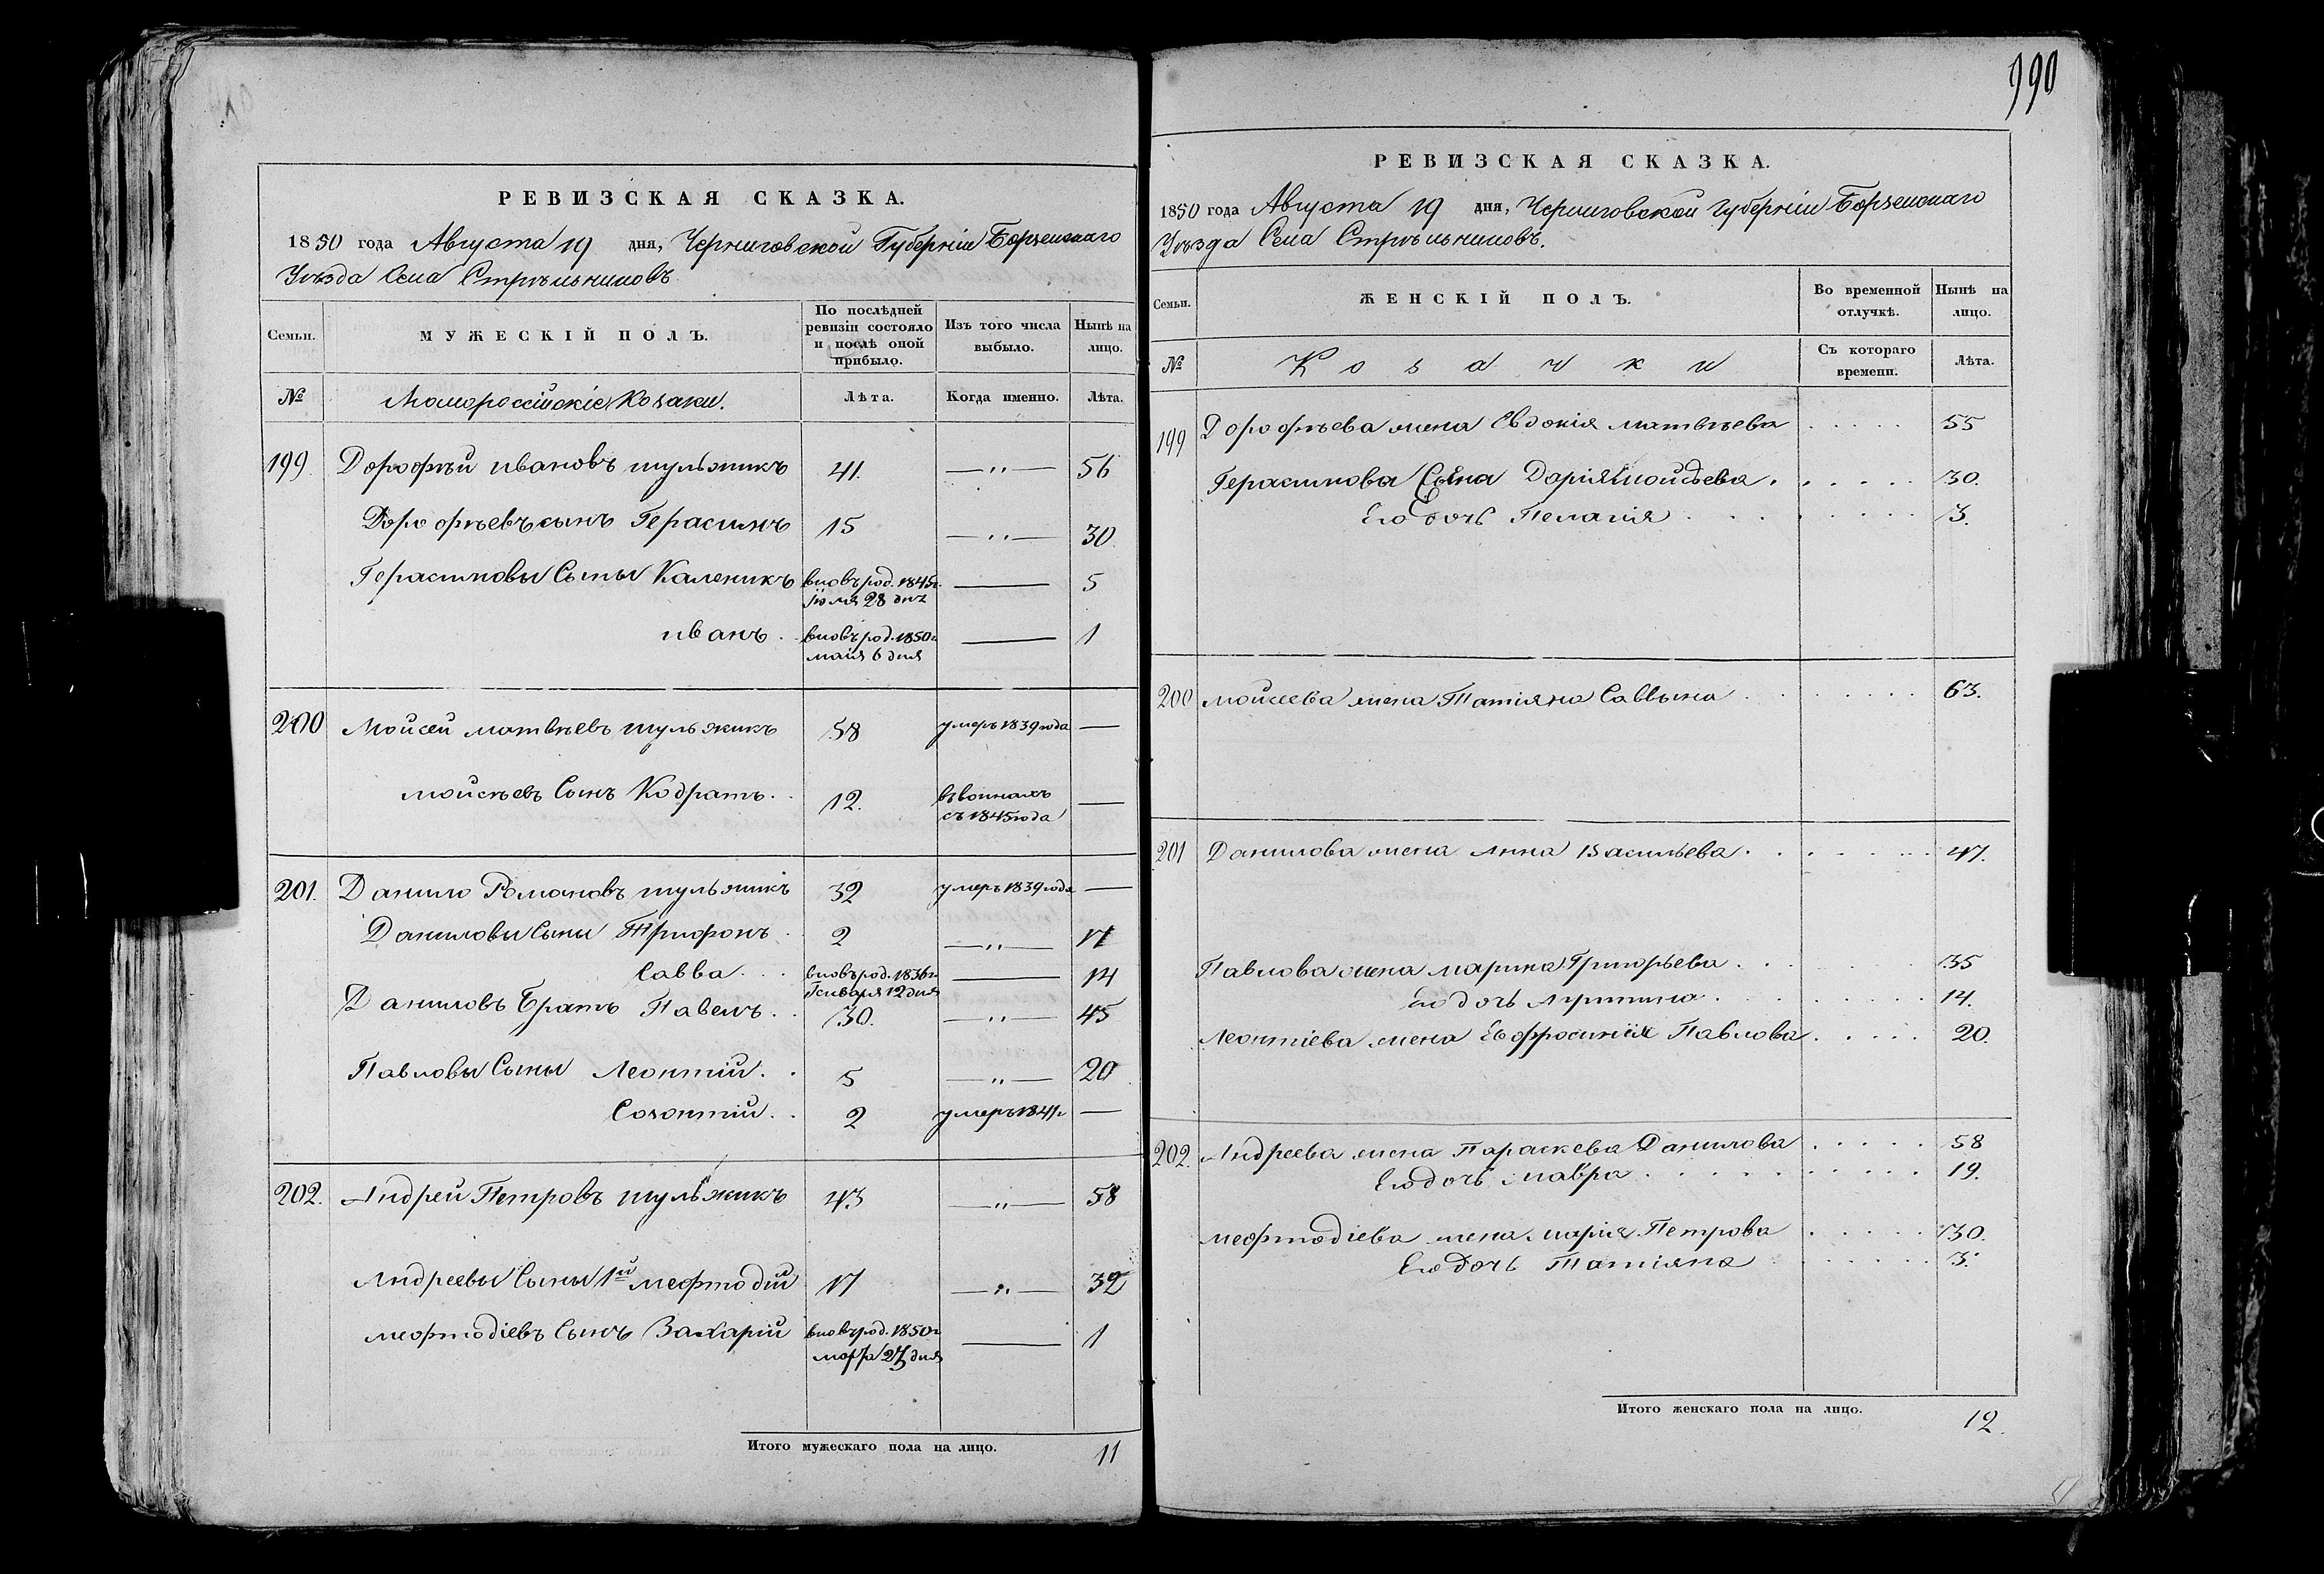 РЕВИЗСКАЯ СКАЗКА.
1850 года Августа 19 дня, Черниговской Губернiи Борзенскаго
Уѣзда Села Стрѣльниковъ
Семьи.
МУЖЕСКІЙ ПОЛЪ.
По послѣдней ревизіи состояло и послѣ оной прибыло.
Изъ того числа выбыло.
Нынѣ на лицо.
№
Малороссійскіе Козаки.
Лѣта.
Когда именно.
Лѣта.
199. Дорофѣй Ивановъ Шульжикъ 41. —"— 56
Дорофѣевъ сынъ Герасимъ 15 —"— 30.
Герасимовы Сыны Каленикъ вновь род. 1845г. — 5
Іюля 28 дня
иванъ. вновь род. 1850г. — 1
маія 6 дня
200 Моисей матвѣевъ шульжикъ 58 умеръ 1839 года —
моисѣевъ Сынъ Кодратъ. 12. въ воинахъ —
съ 1845 года
201. Данило Романовъ шульжикъ 32 умеръ 1839 года —
Даниловы Сыны Трифонъ. 2 —"— 17
Савва. вновь род. 1836г. — 14
Генваря 12 дня
Даниловъ Братъ Павелъ. 30. —"— 45
Павловы Сыны Леонтій. 5 —"— 20
Созонтій. 2 умеръ 1841г —
202. Андрей Петровъ шульжикъ 43 —"— 58
Андреевы Сыны 1й мефтодій 17 —"— 32
мефтодіевъ Сынъ Захарій вновь род. 1850г. — 1
марта 27 дня
Итого мужескаго пола на лицо. 11
990
РЕВИЗСКАЯ СКАЗКА.
1850 года Августа 19 дня, Черниговской губерніи Борзенскаго
Уѣзда Села Стрѣльниковъ.
Семьи.
ЖЕНСКІЙ ПОЛЪ.
Во временной отлучкѣ.
Нынѣ на лицо.
№
Козачки
Съ котораго времени.
Лѣта.
199 Дорофѣева жена Евдокія матвѣева 55
Герасимова жена Дарія моисѣева. 30.
Его дочь Пелагія 3.
200 моисеева жена Татіяна Саввына 63.
201 Данилова жена Анна Васильева. 47.
Павлова жена марина Григорьева. 35
Его дочь 14.
Леонтіева жена Евфросинія Павлова 20.
202. Андреева жена Параскева Данилова 58
Его дочь мавра 19.
мефтодіева жена марія Петрова 30.
Его дочь Татіяна 3.
Итого женскаго пола на лицо. 12.